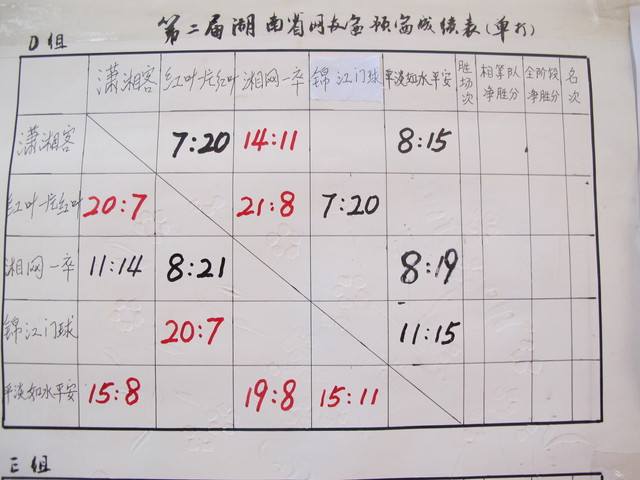 第二届湖南省网友盃预赛成绩表(单打)
D组
潇湘客 红叶一片红叶 湘网一卒 锦江门球 平淡如水平安 胜场次 相等队净胜分 全阶段净胜分 名次
潇湘客 7:20 14:11 8:15
红叶一片红叶 20:7 21:8 7:20
湘网一卒 11:14 8:21 8:19
锦江门球 20:7 11:15
平淡如水平安 15:8 19:8 15:11
E组